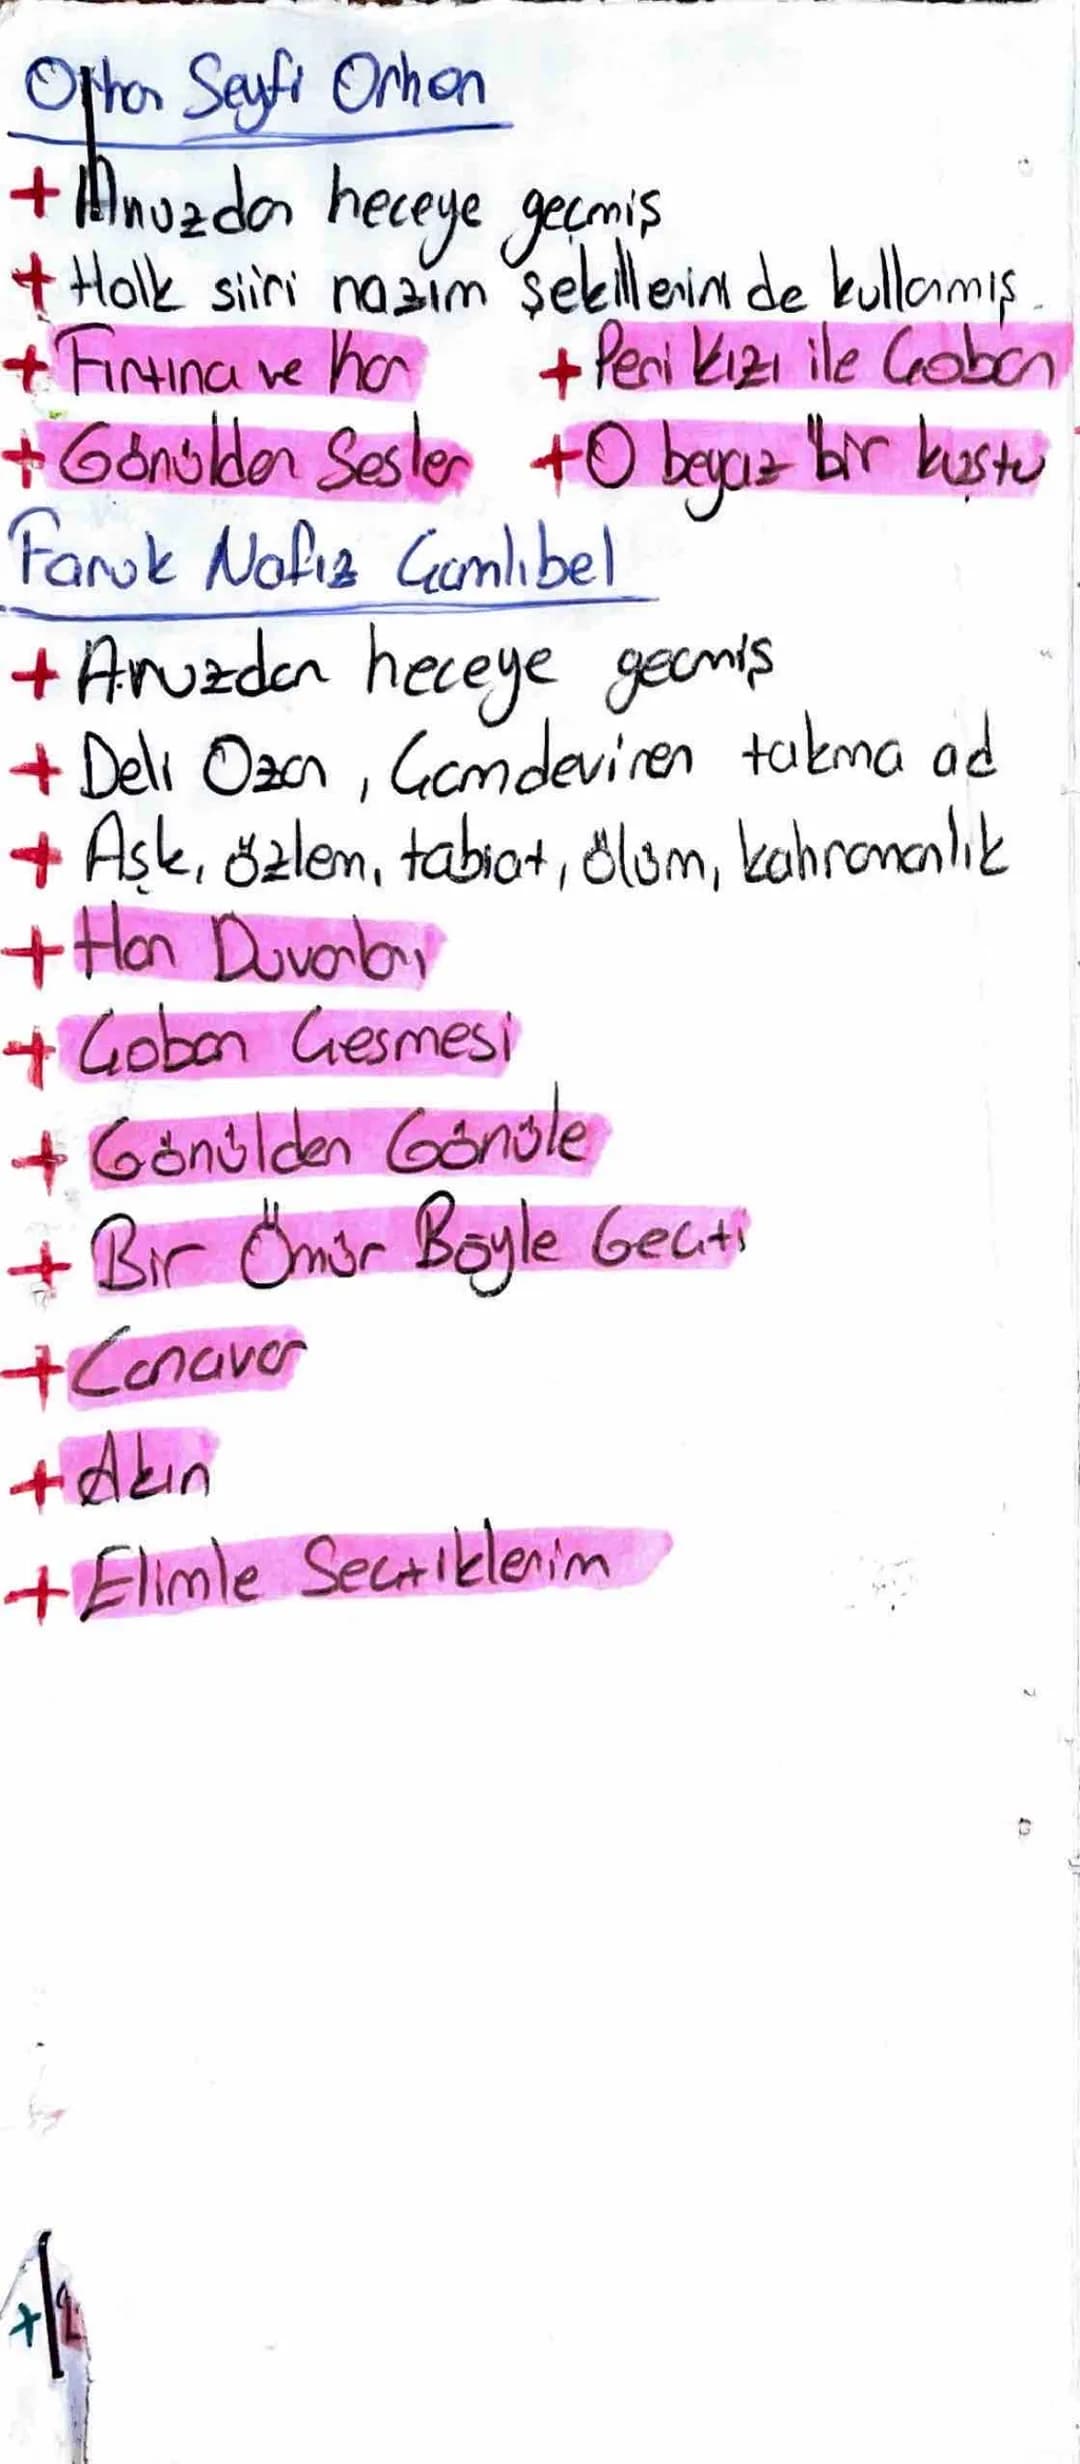 Orhan Seyfi Orhon
+ Aruzdan heceye geçmiş
+ Halk şiiri nazım şekillerini de kullanmış.
+ Fırtına ve Kar + Peri Kızı ile Çoban
+ Gönülden Sesler + O beyaz bir kuştu
Faruk Nafiz Çamlıbel
+ Aruzdan heceye geçmiş
+ Deli Ozan, Çamdeviren takma ad
+ Aşk, özlem, tabiat, ölüm, kahramanlık
+ Han Duvarları
+ Çoban Çeşmesi
+ Gönülden Gönüle
+ Bir Ömür Böyle Geçti
+ Canavar
+ Akın
+ Elimle Seçtiklerim